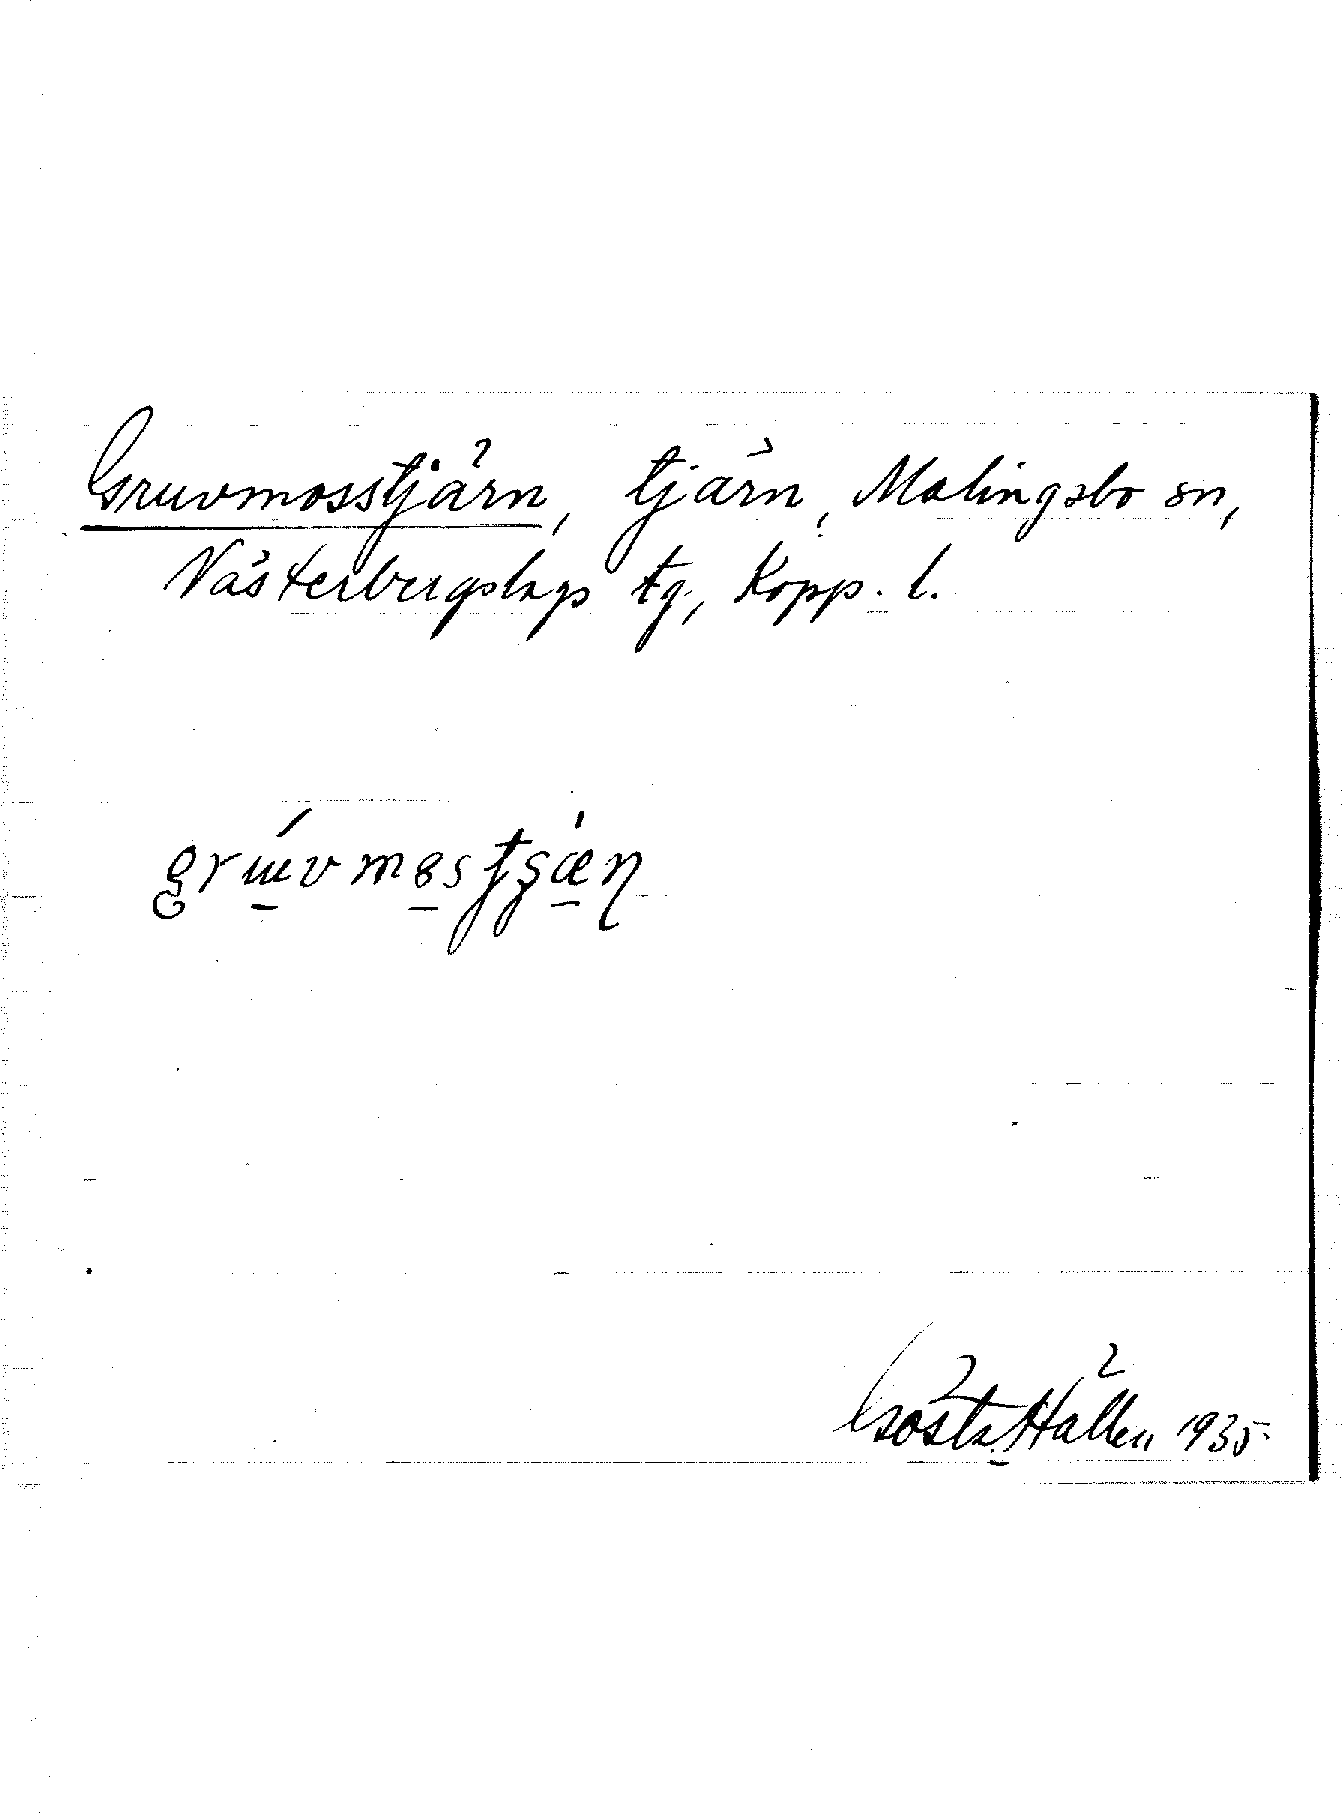 Gruvmosstjärn, tjärn, Malingsbo sn,
Västerbergslags tg, Kopp. l.
Gösta Hallen 1935